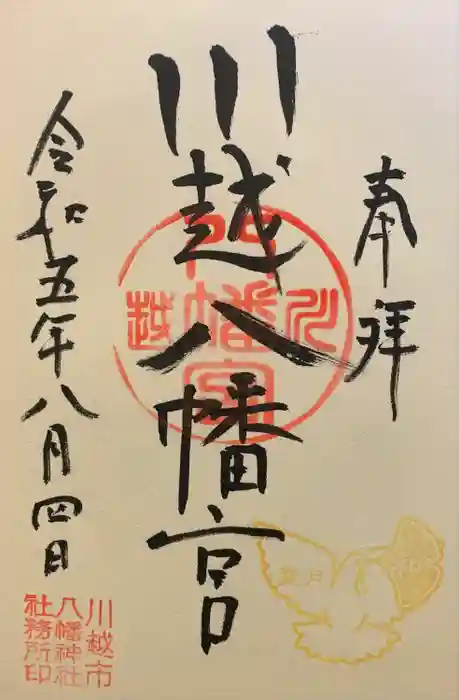 奉拝
川越八幡宮
令和五年八月四日
川越
八幡宮
川越市
八幡神社
社務所印
葉月